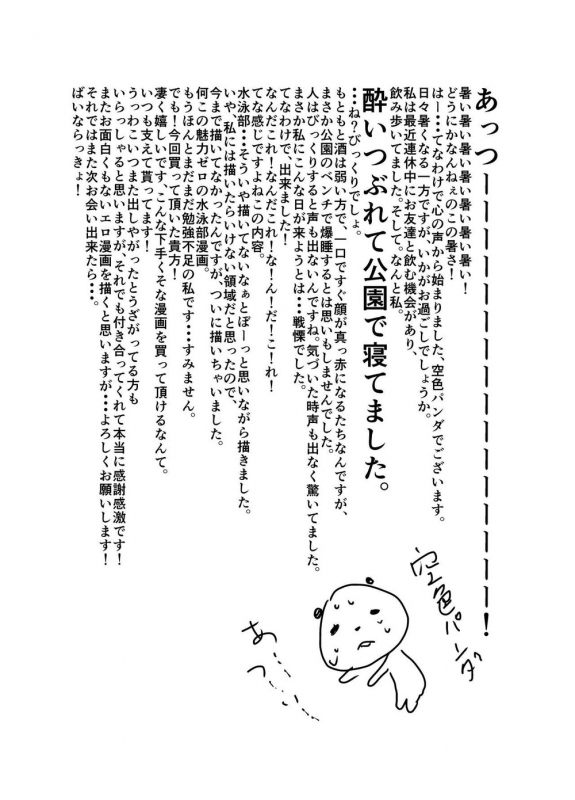 あっつーーーーーーーーーーーーーーーー！
暑い暑い暑い暑い暑い暑い暑い！
どうにかなんねぇのこの暑さ！
はー…てなわけで心の声から始まりました、空色パンダでございます。
日々暑くなる一方ですが、いかがお過ごしでしょうか。
私は最近連休中にお友達と飲む機会があり、
飲み歩いてました。そして。なんと私。
酔いつぶれて公園で寝てました。
…ね？びっくりでしょ。
もともと酒は弱い方で、一口ですぐ顔が真っ赤になるたちなんですが、
まさか公園のベンチで爆睡するとは思いもしませんでした。
人はびっくりすると声も出ないんですね。気づいた時声も出なく驚いてました。
まさか私にこんな日が来ようとは…戦慄でした。
てなわけで、出来ました！
なんだこれ！なんだこれ！な！ん！だ！こ！れ！
てな感じですよねこの内容。
水泳部…そういや描いてないなぁとぼーっと思いながら描きました。
いや、私には描いたらいけない領域だと思ったので、
今まで描いてなかったんですが、ついに描いちゃいました。
何この魅力ゼロの水泳部漫画。
もうほんとまだまだ勉強不足の私です…すみません。
でも！今回買って頂いた貴方！
凄く嬉しいです、こんな下手くそな漫画を買って頂けるなんて。
いつも支えて貰ってます！
うっわこいつまた出しやがったとうざがってる方も
いらっしゃると思いますが、それでも付き合ってくれて本当に感謝感激です！
またお面白くもないエロ漫画を描くと思いますが…よろしくお願いします！
それではまた次お会い出来たら…。
ばいならっきょ！
空色パンダ
あ……
つ……い……